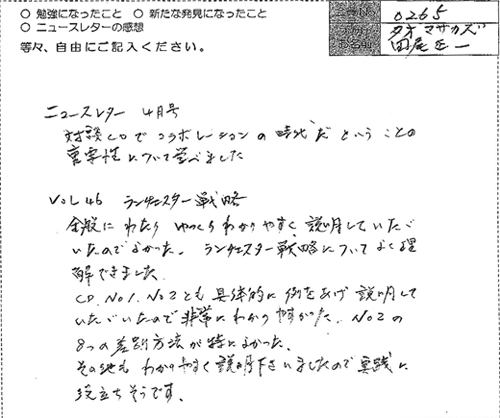 ○ 勉強になったこと ○ 新たな発見になったこと
○ ニュースレターの感想
等々、自由にご記入ください。
0265
タオ マサカズ
田尾 正一
ニュースレター 4月号
対談CDでコラボレーションの時代だということの
重要性について学べました
VOL46 ランチェスター戦略
全般にわたり ゆっくりわかりやすく説明していただ
いたのでよかった。ランチェスター戦略についてよく理
解できました
CD. NO1. NO2とも具体的に例をあげ説明して
いただいたので非常にわかりやすかった。NO2の
8つの差別方法が特によかった。
その他もわかりやすく説明下さいましたので実践に
役立ちそうです。